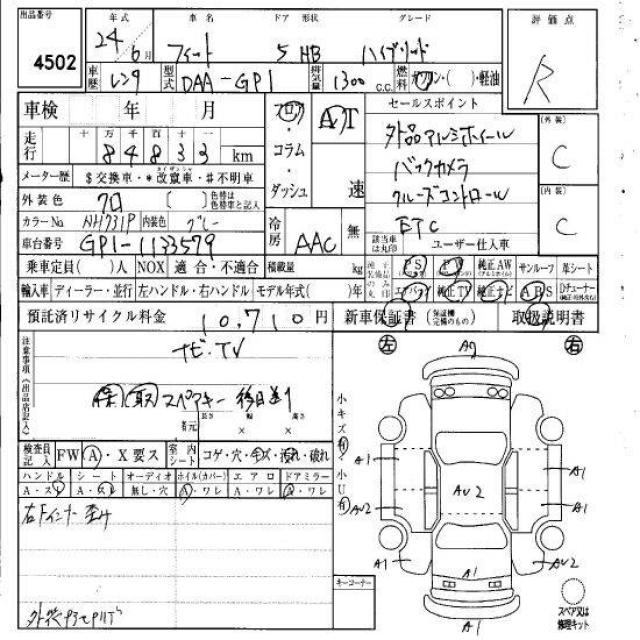 出品番号 年式 車名 ドア 形状 グレード 評価点
4502 24年 6月 フィット 5 HB ハイブリッド R
車歴 レンタ 型式 DAA-GP1 排気量 1300 c.c. 燃料 ガソリン・( )・軽油
車検 年 月 フロア・コラム・ダッシュ AT 速 セールスポイント
外品アルミホイール
バックカメラ
クルーズコントロール
ETC
(外装) C
(内装) C
走行 十万千百十一
84833 km
メーター歴 $交換車・*改竄車・#不明車
外装色 クロ 〔 〕 色替は色替車と記入
カラーNo NH731P 内装色 グレー
冷房 AAC 無
車台番号 GP1-1133579
該当車は丸印 ユーザー仕入車
乗車定員( )人 NOX 適合・不適合 積載量 kg PS PW 純正AW サンルーフ 革シート
輸入車 ディーラー・並行 左ハンドル・右ハンドル モデル年式( )年 エアバッグ 純正TV 純正ナビ ABS Dチューナー
預託済リサイクル料金 10,710円 新車保証書 (保証継完備のもの) 取扱説明書
注意事項(出品店記入)
ナビ・TV
保 取 スペアキー 後日送り
長さ 幅 高さ
名義 × ×
左 右
小キズ有・小U有
検査員記入 FW A・X要ス 室内シート コゲ・穴・キズ・汚れ・破れ
ハンドル シート オーディオ ホイル(カバー) エアロ ドアミラー
A・スレ A・スレ 無し・穴 A・ワレ A・ワレ A・ワレ
A9
A1
A1
AU2
AU2
A1
A1
AU2
A1
A1
キーコーナー
スペア又は
修理キット